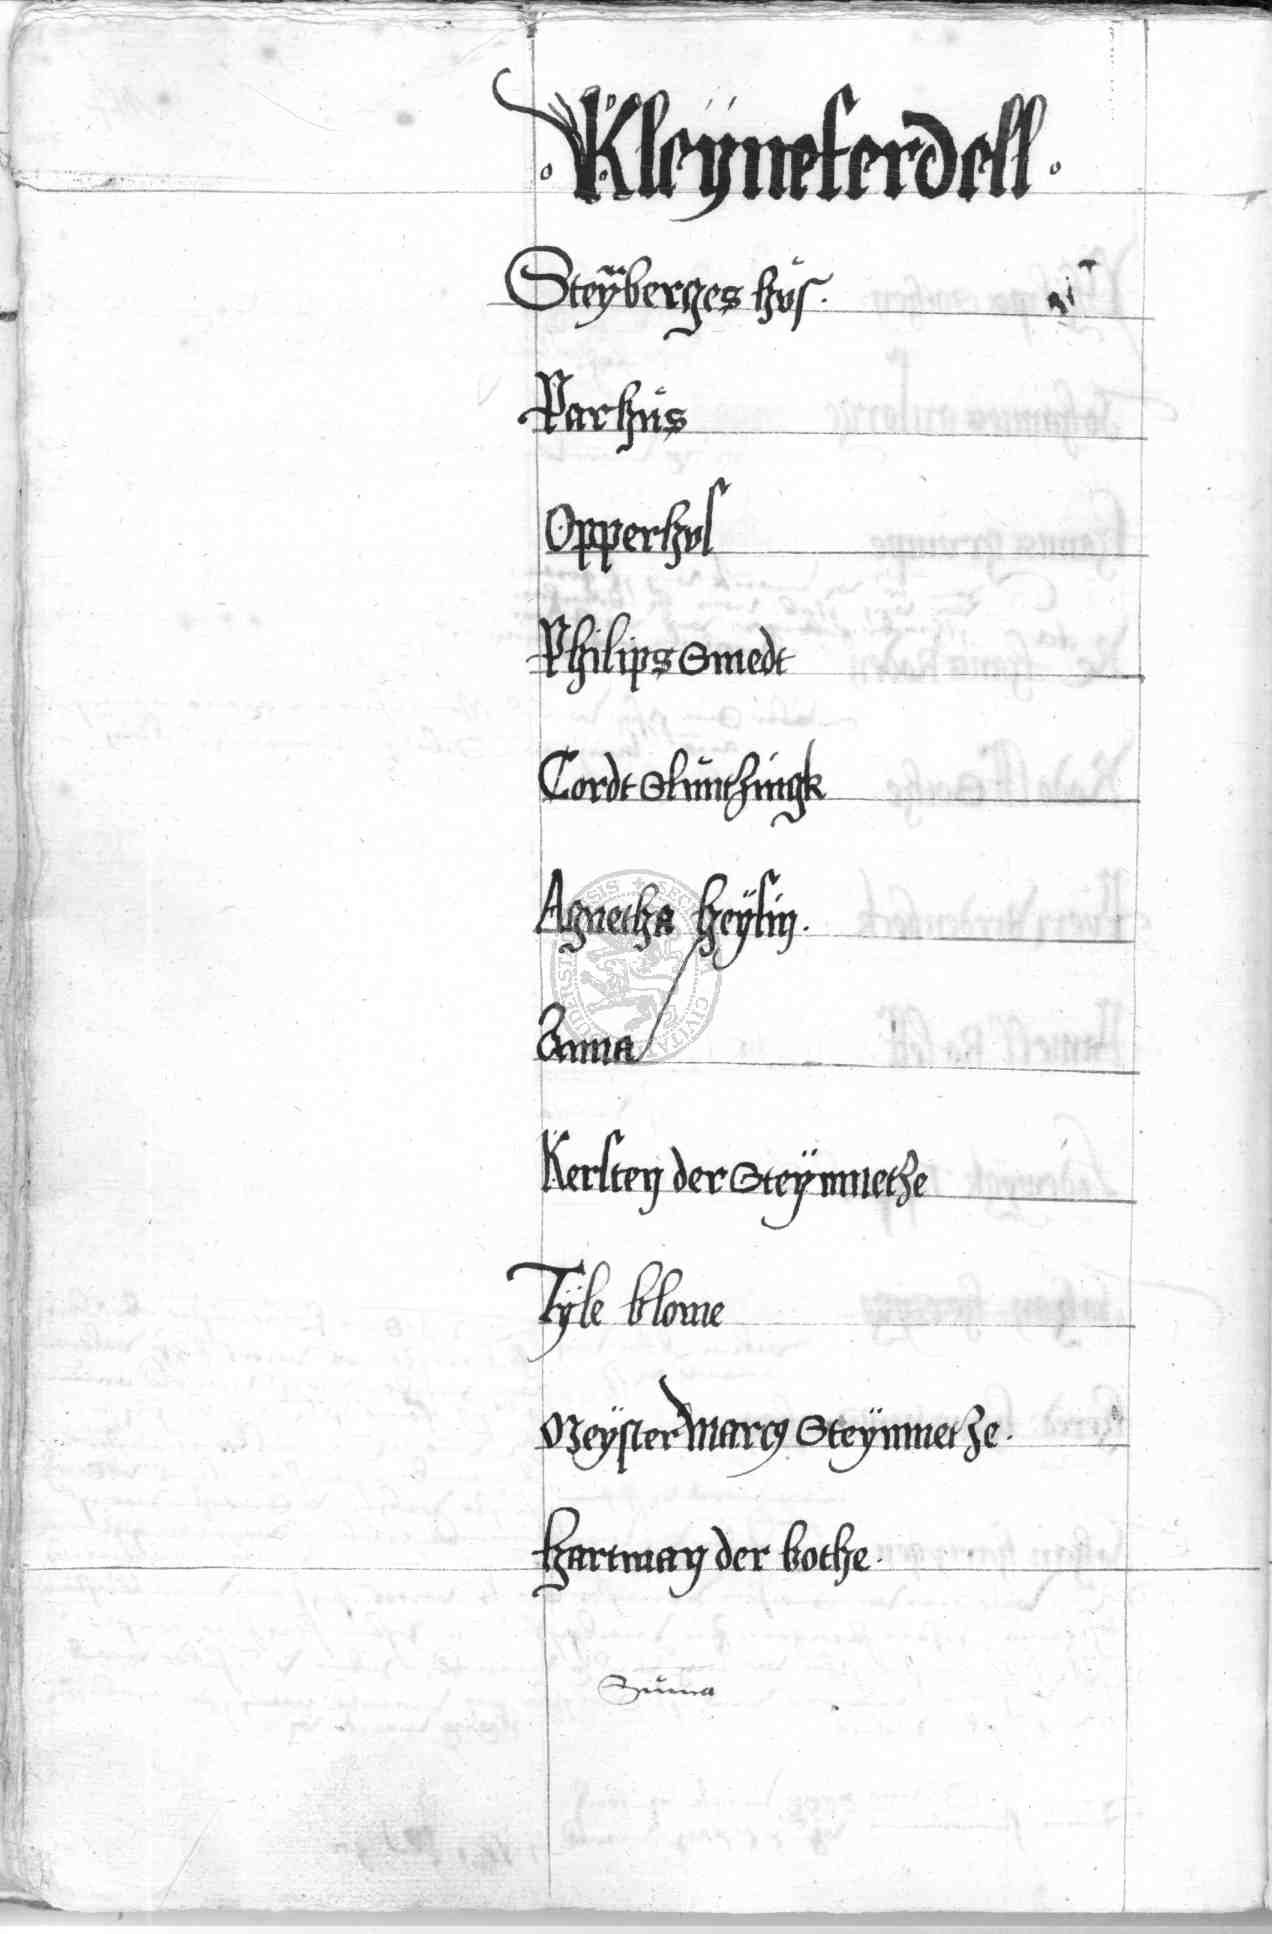 Kleÿneferdell
Steÿberges hůs.
Parhůs
Opperhus
Philips Smedt
Cordt Slůnthingk
Agnetha Heÿsin.
Anna
Kersten der Steÿnmethe
Tÿle blome
Meÿster Marcus Steÿnmetze.
Hartman der bothe.
Suma